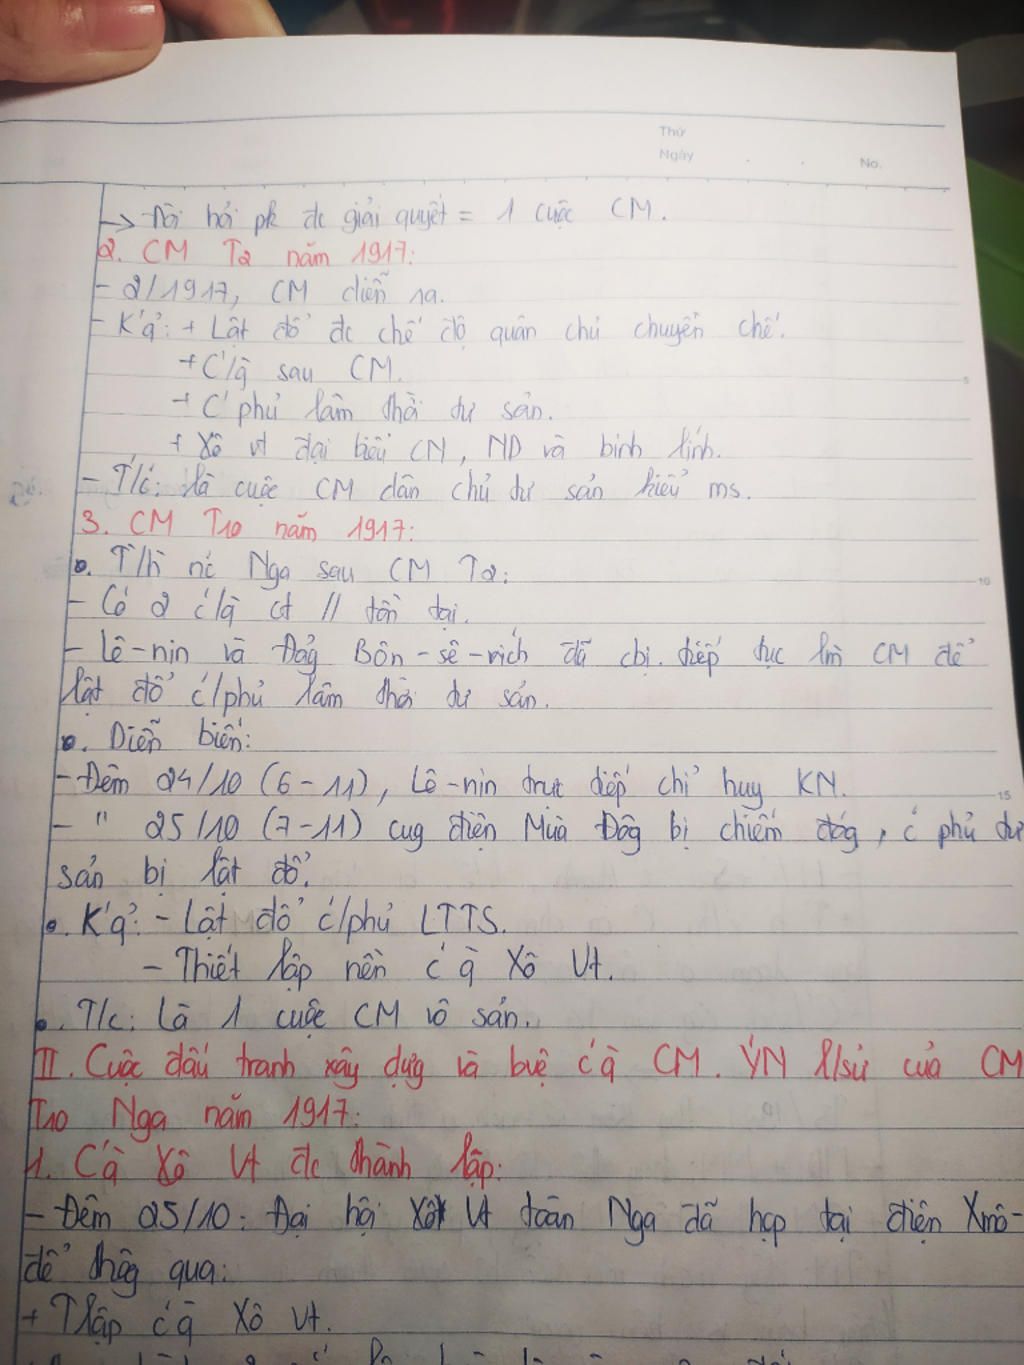 Thứ
Ngày . . No.
→ Đòi hỏi pk đc giải quyết = 1 cuộc CM.
2. CM T2 năm 1917:
- 2/1917, CM diễn ra.
- K'q̉: + Lật đổ đc chế độ quân chủ chuyên chế.
+ C'/q̀ sau CM.
+ C' phủ lâm thời tư sản.
+ Xô vt đại biểu CN, ND và binh lính.
- T/c: là cuộc CM dân chủ tư sản kiểu ms.
3. CM T10 năm 1917:
. T/h nc Nga sau CM T2:
- Có 2 c'/q̀ ct // tồn tại.
- Lê-nin và Đảg Bôn-sê-vích đã cbị tiếp tục lm CM để
lật đổ c'/phủ lâm thời tư sản.
. Diễn biến:
- Đêm 24/10 (6-11), Lê-nin trực tiếp chỉ huy KN.
- " 25/10 (7-11) cug điện Mùa Đôg bị chiếm đóg, c' phủ tư
sản bị lật đổ.
. K'q̉: - Lật đổ c'/phủ LTTS.
- Thiết lập nền c' q̀ Xô Vt.
. T/c: Là 1 cuộc CM vô sản.
II. Cuộc đấu tranh xây dựg và bvệ c'q̀ CM. YN l/sử của CM
T10 Nga năm 1917:
1. C'q̀ Xô Vt đc thành lập:
- Đêm 25/10: Đại hội Xô Vt toàn Nga đã họp tại điện Xmô-
để thôg qua:
+ Tlập c'q̀ Xô Vt.